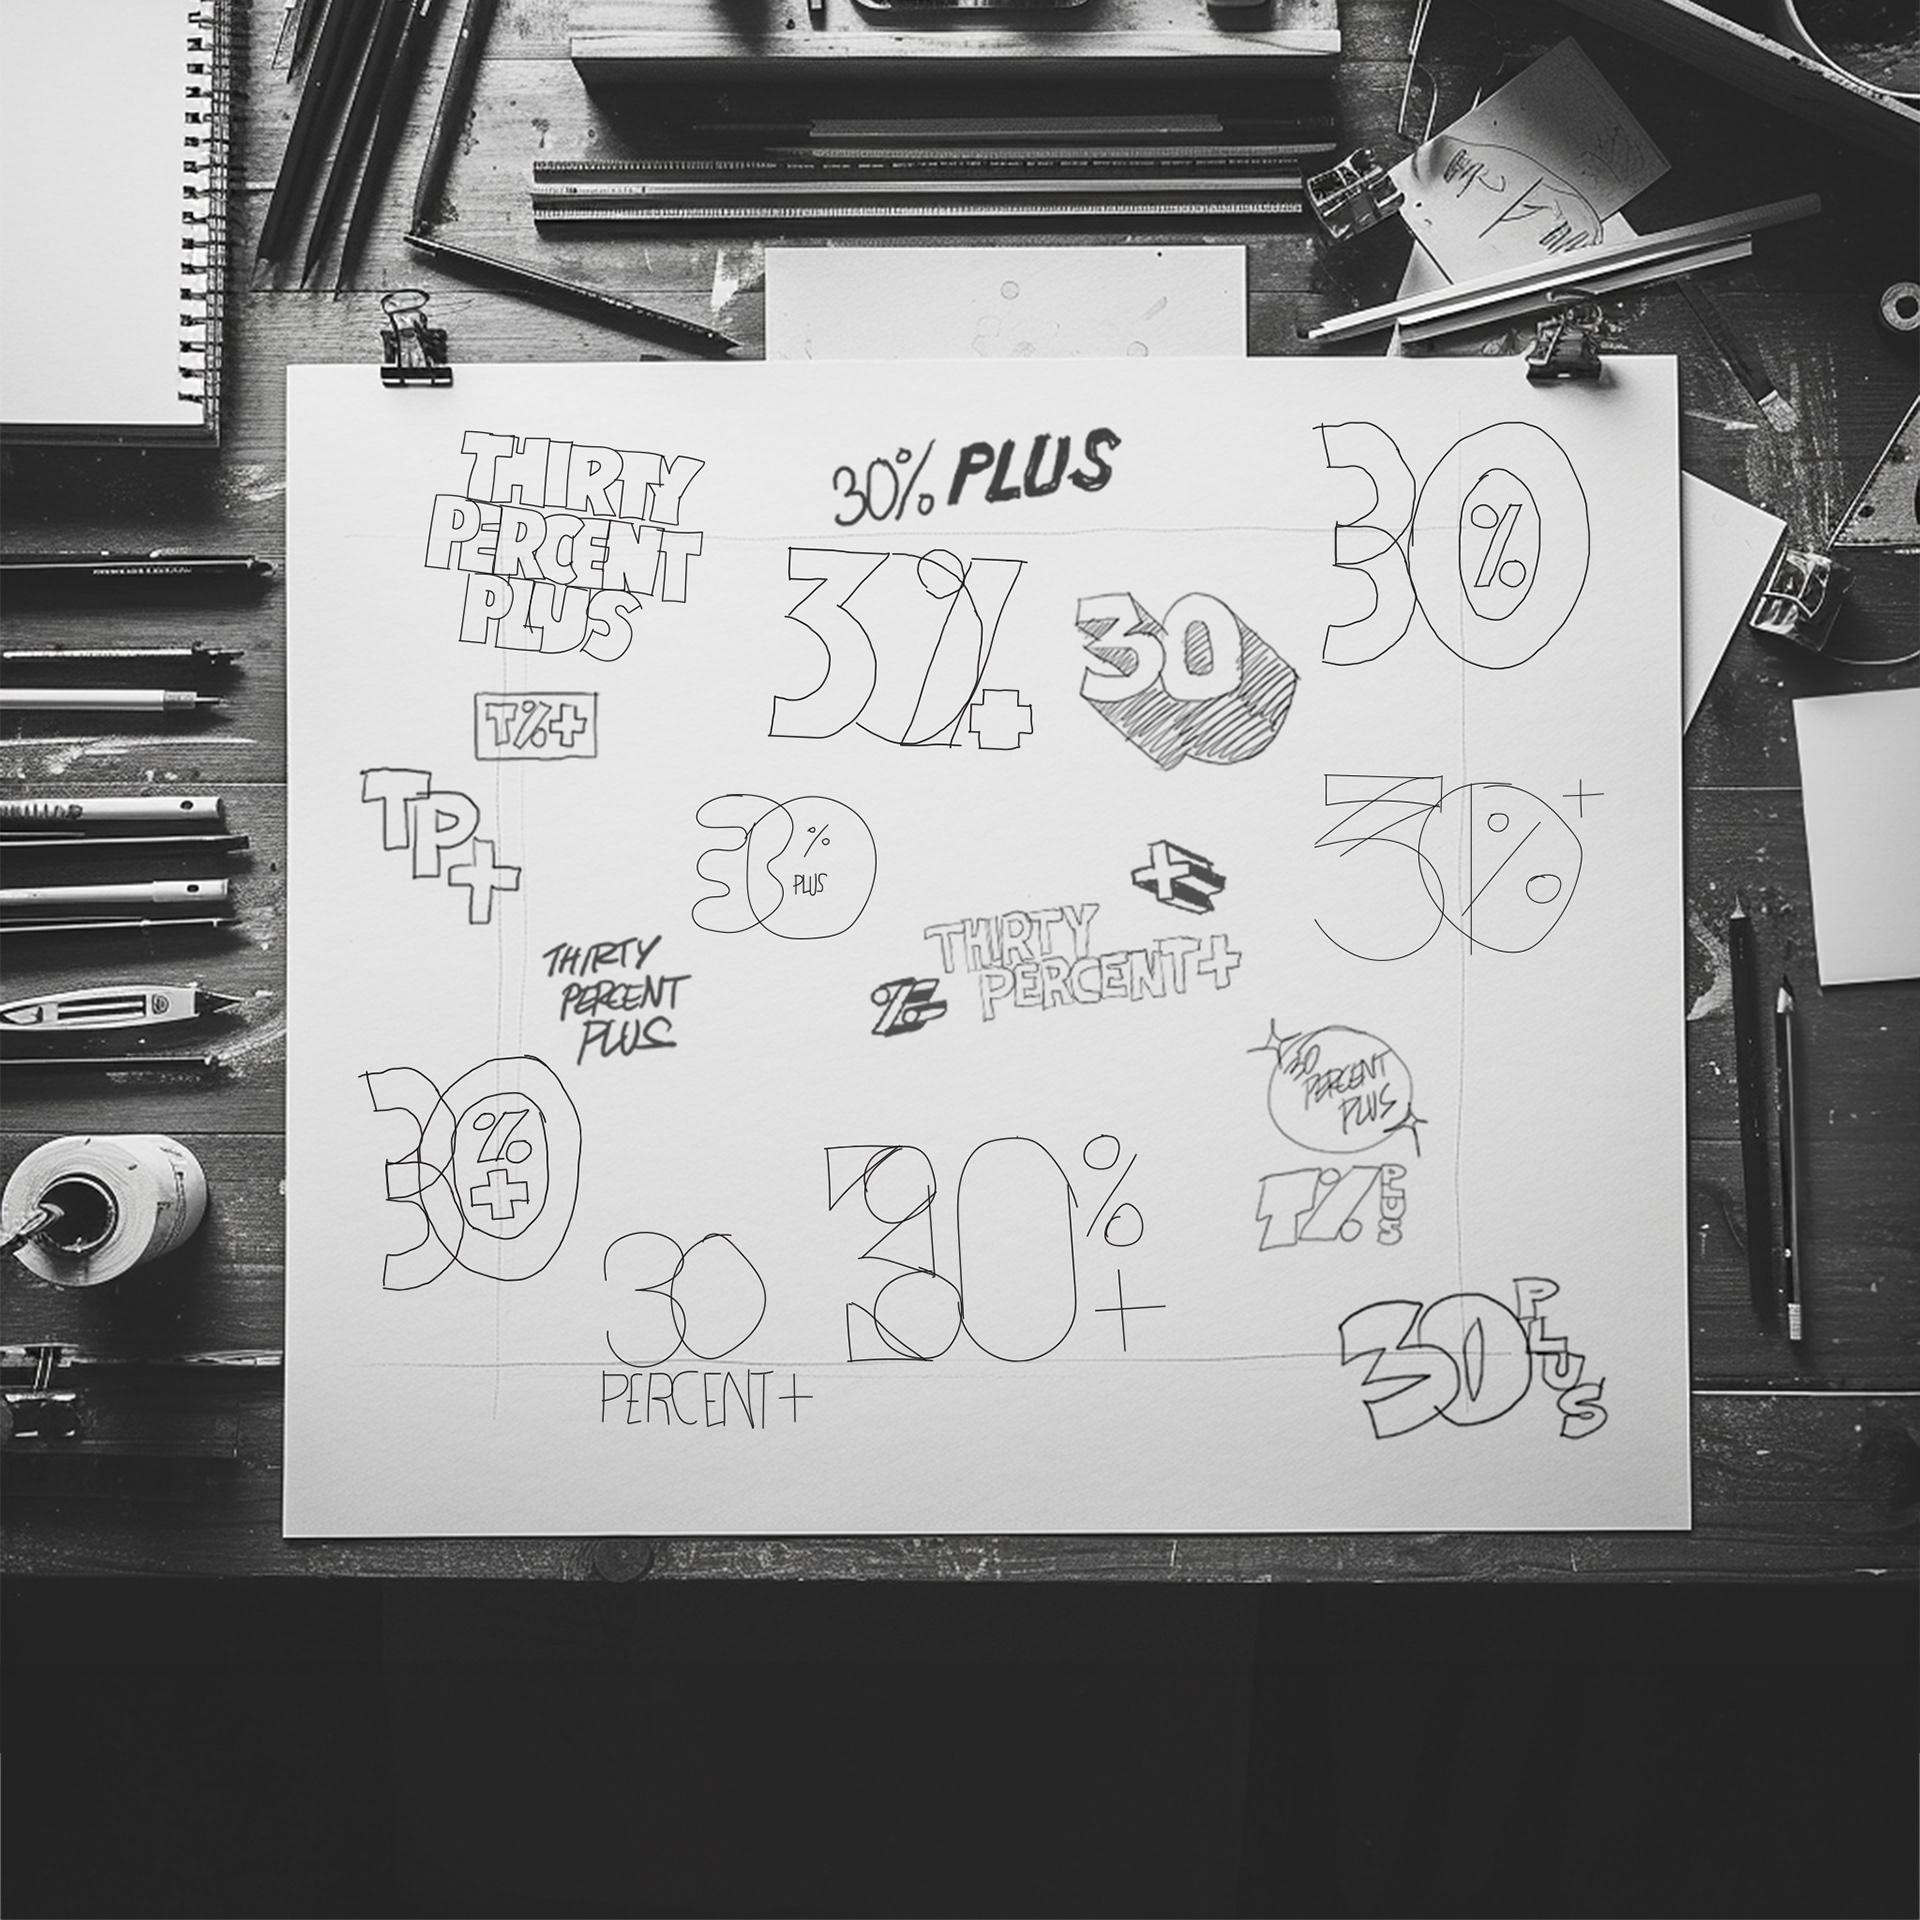 THIRTY
PERCENT
PLUS
30% PLUS
30
%
3%
+
30
T%+
TP+
30
%
PLUS
30%+
+
THIRTY
PERCENT+
%
THIRTY
PERCENT
PLUS
30
PERCENT
PLUS
30
%
+
T%
PLUS
30%
+
30
PERCENT+
30
PLUS